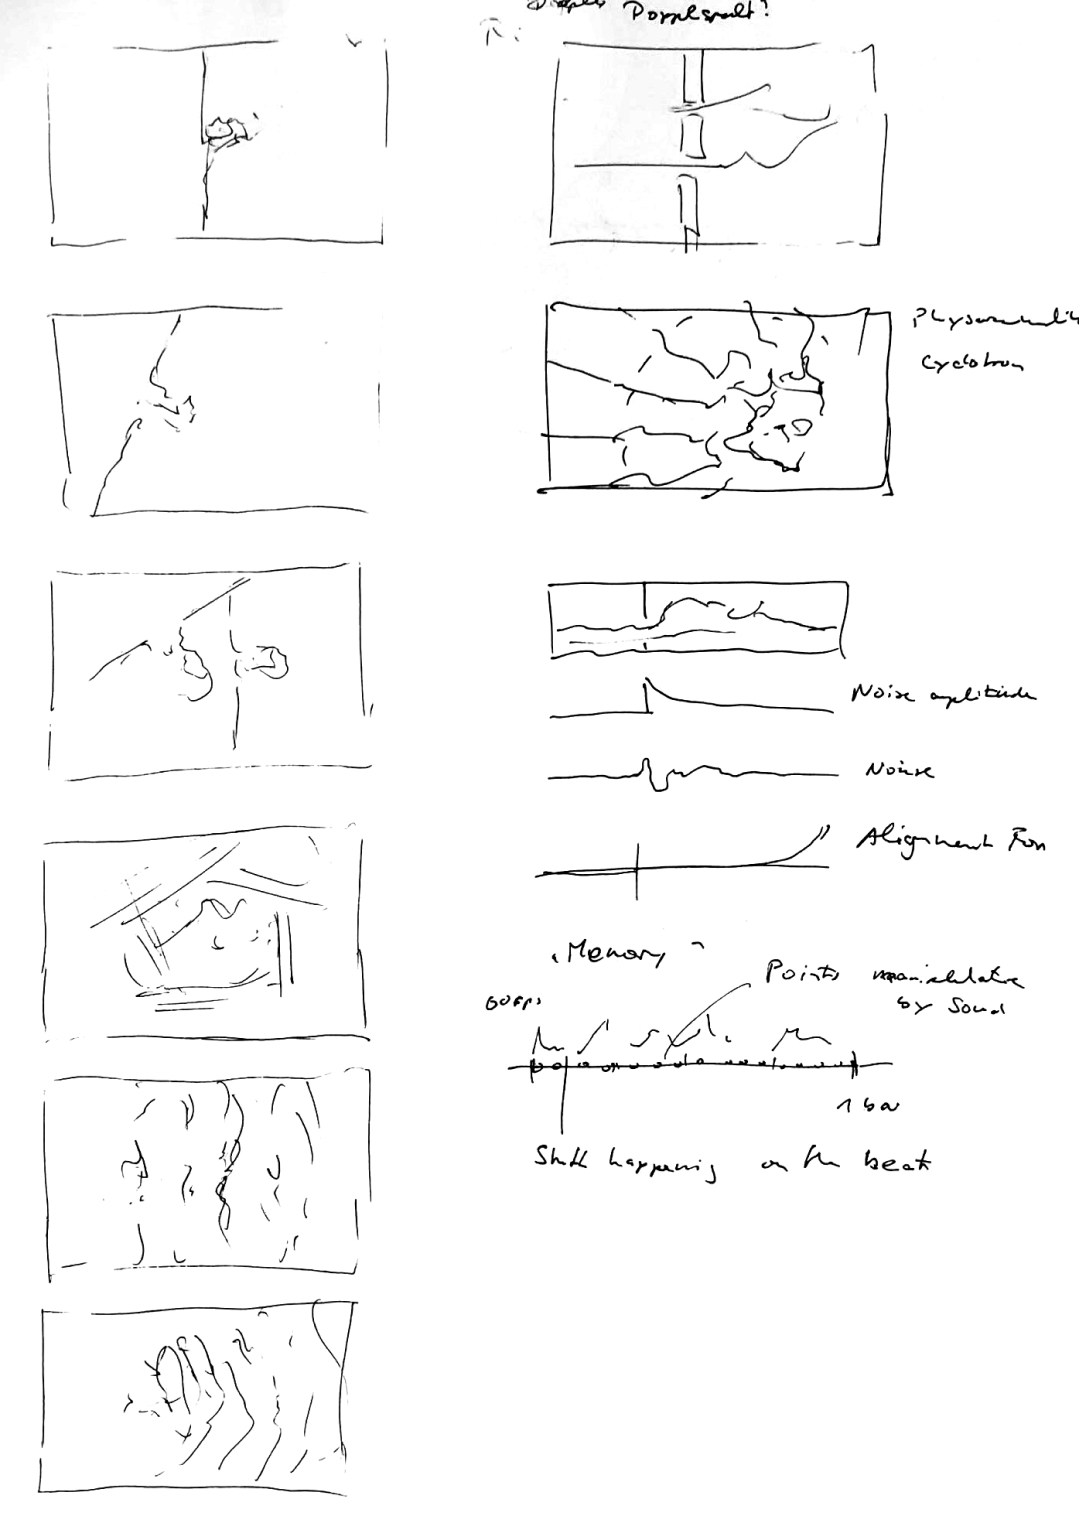 Doppelspalt?
Cyclotron
Noise amplitude
Noise
Alignment For
"Memory"
Points manipulative
by Sound
60 FPS
1 bar
Stuff happening on the beat